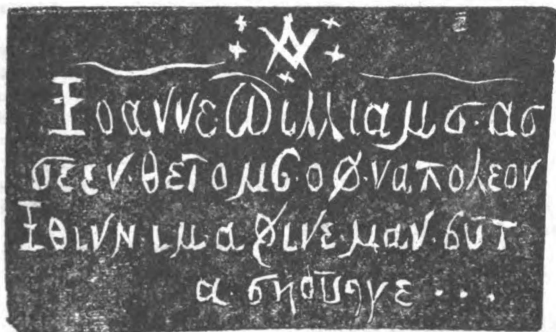 Ιοαννε Ѡιλλιαμσ·ασ
σεεν·θε τομβ·οφ·ναπολεον
Ιθινν·ιμ·α φινε·μαν·βυτ
α·